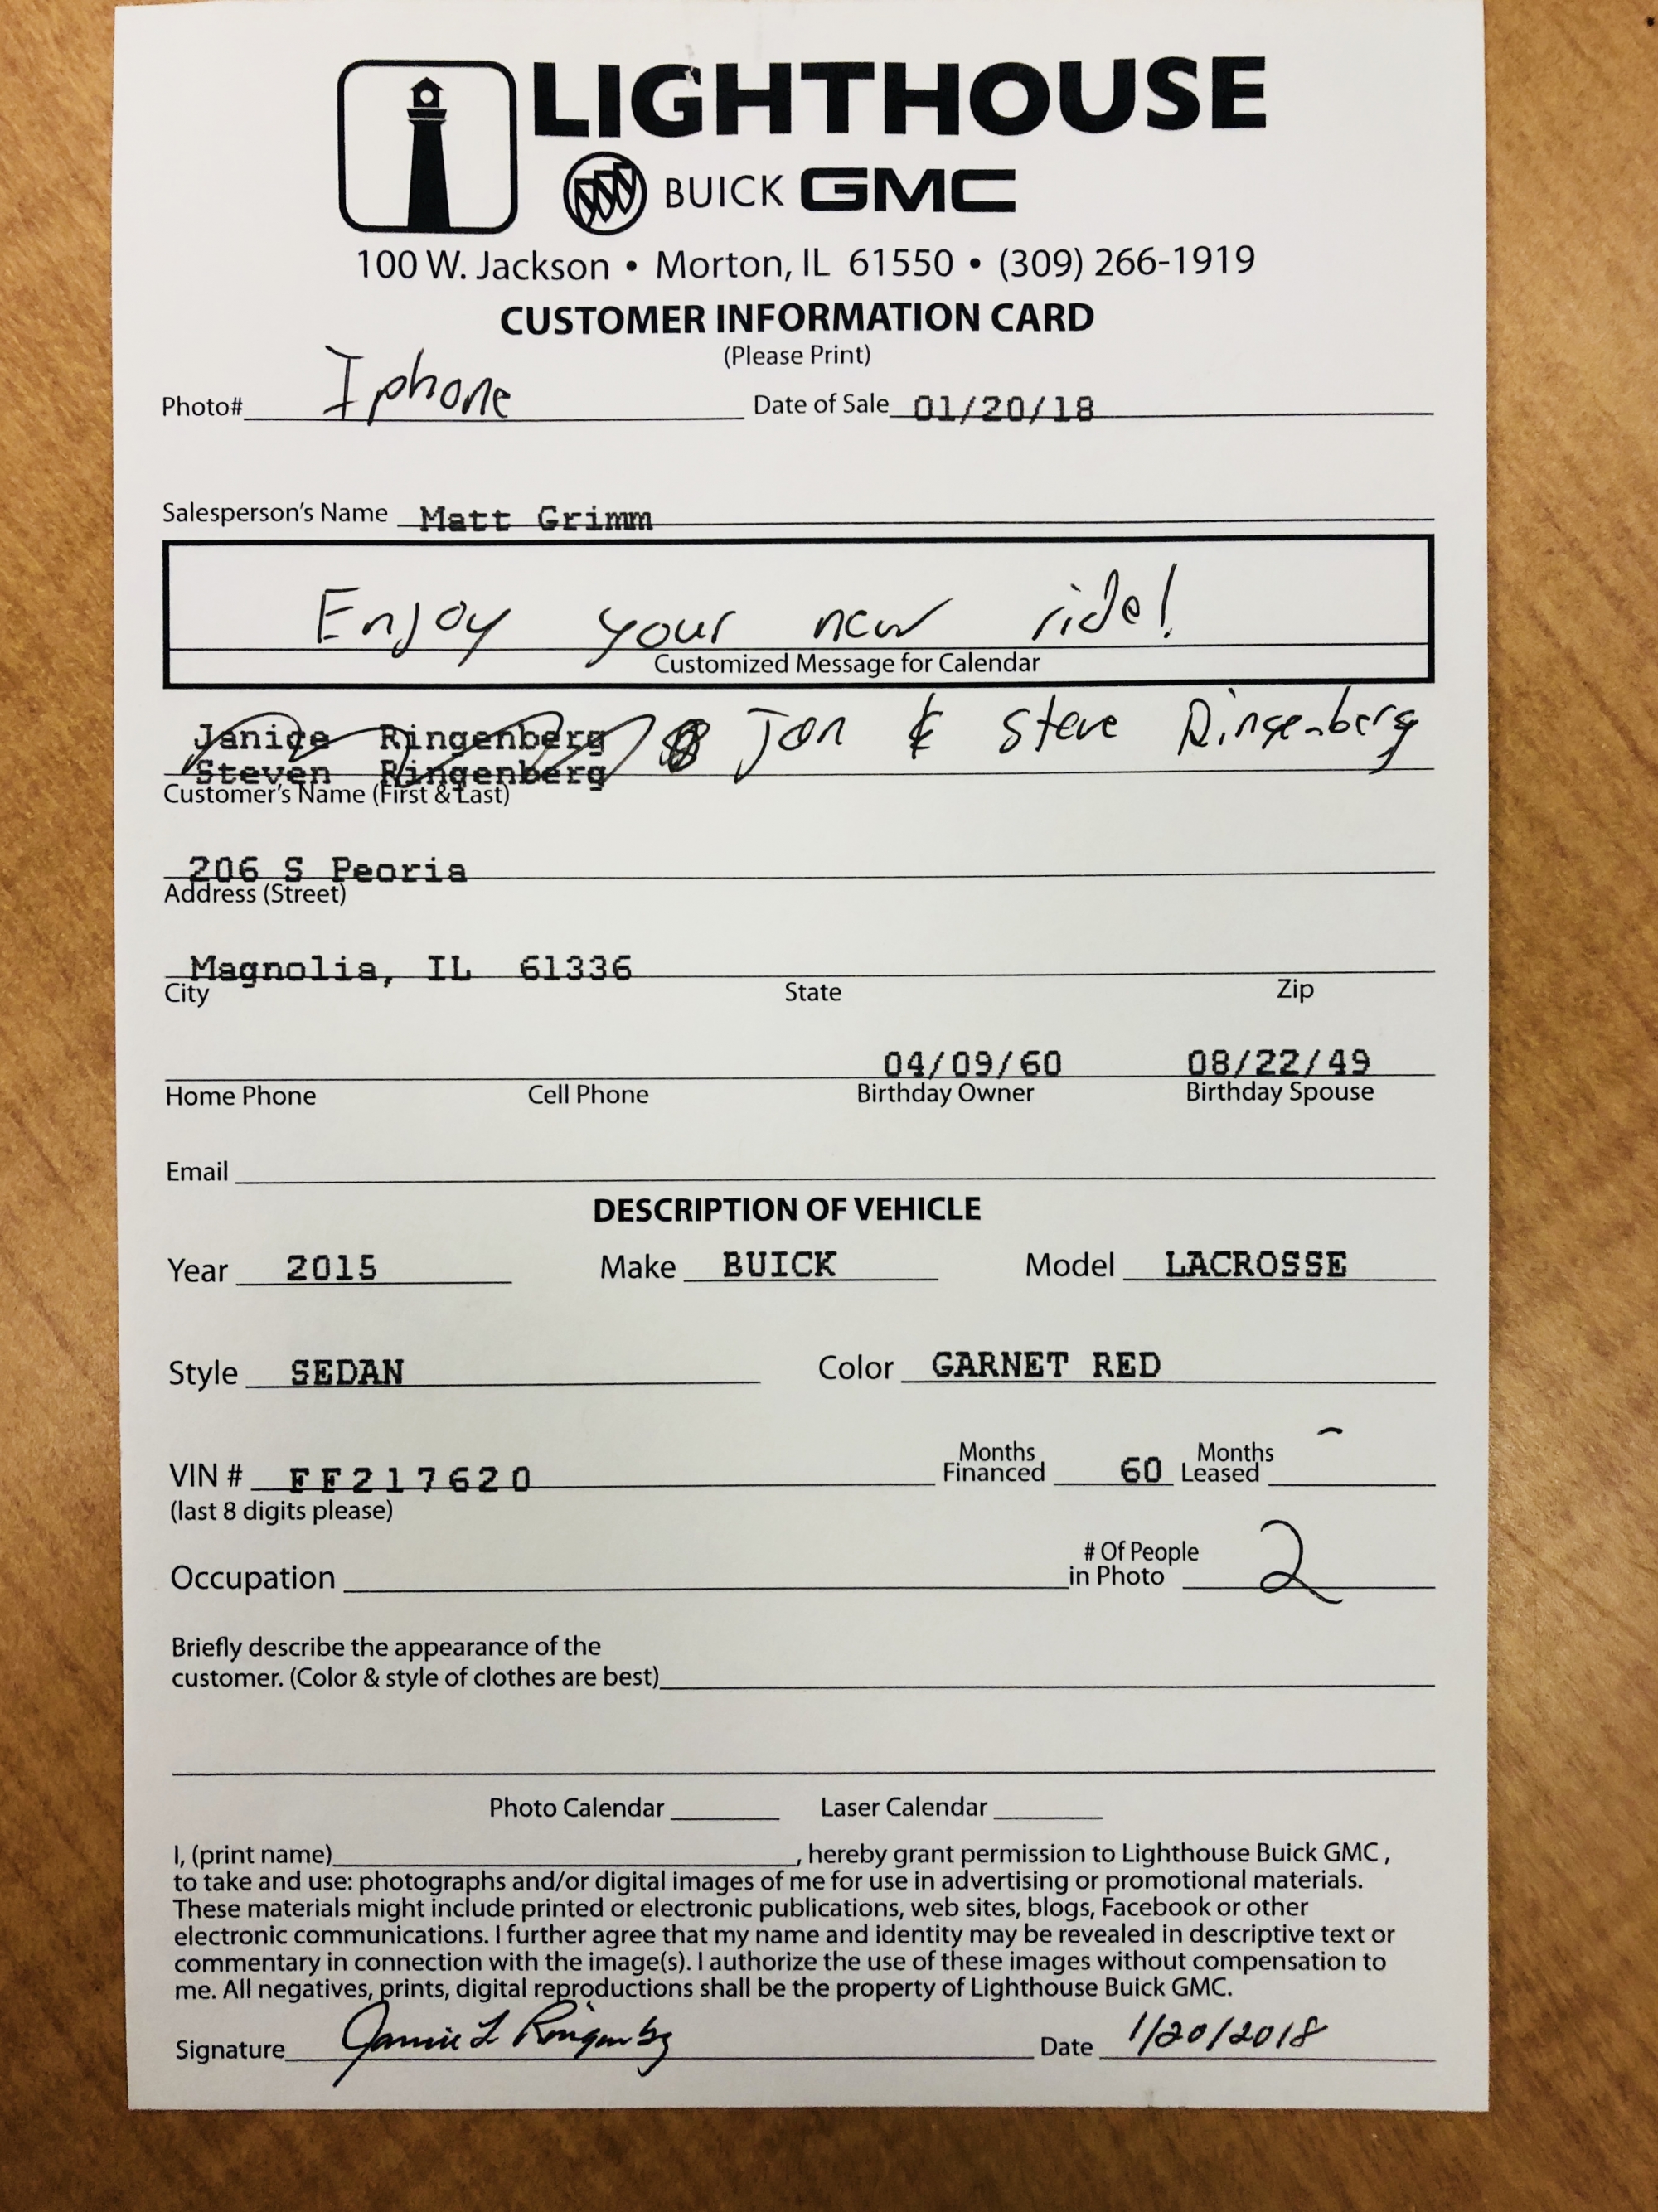 LIGHTHOUSE
BUICK GMC
100 W. Jackson • Morton, IL 61550 • (309) 266-1919
CUSTOMER INFORMATION CARD
(Please Print)
Photo# Iphone Date of Sale 01/20/18
Salesperson's Name Matt Grimm
Enjoy your new ride!
Customized Message for Calendar
Janice Ringenberg & Jan & Steve Ringenberg
Steven Ringenberg
Customer's Name (First & Last)
206 S Peoria
Address (Street)
Magnolia, IL 61336
City State Zip
04/09/60 08/22/49
Home Phone Cell Phone Birthday Owner Birthday Spouse
Email
DESCRIPTION OF VEHICLE
Year 2015 Make BUICK Model LACROSSE
Style SEDAN Color GARNET RED
VIN # FF217620 Months Financed 60 Months Leased -
(last 8 digits please)
Occupation # Of People in Photo 2
Briefly describe the appearance of the
customer. (Color & style of clothes are best)
Photo Calendar Laser Calendar
I, (print name) , hereby grant permission to Lighthouse Buick GMC ,
to take and use: photographs and/or digital images of me for use in advertising or promotional materials.
These materials might include printed or electronic publications, web sites, blogs, Facebook or other
electronic communications. I further agree that my name and identity may be revealed in descriptive text or
commentary in connection with the image(s). I authorize the use of these images without compensation to
me. All negatives, prints, digital reproductions shall be the property of Lighthouse Buick GMC.
Signature Janice L Ringenberg Date 1/20/2018